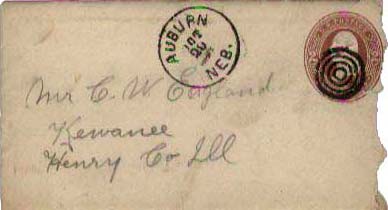 AUBURN
NEB.
Mr C. W England
Kewanee
Henry Co Ill